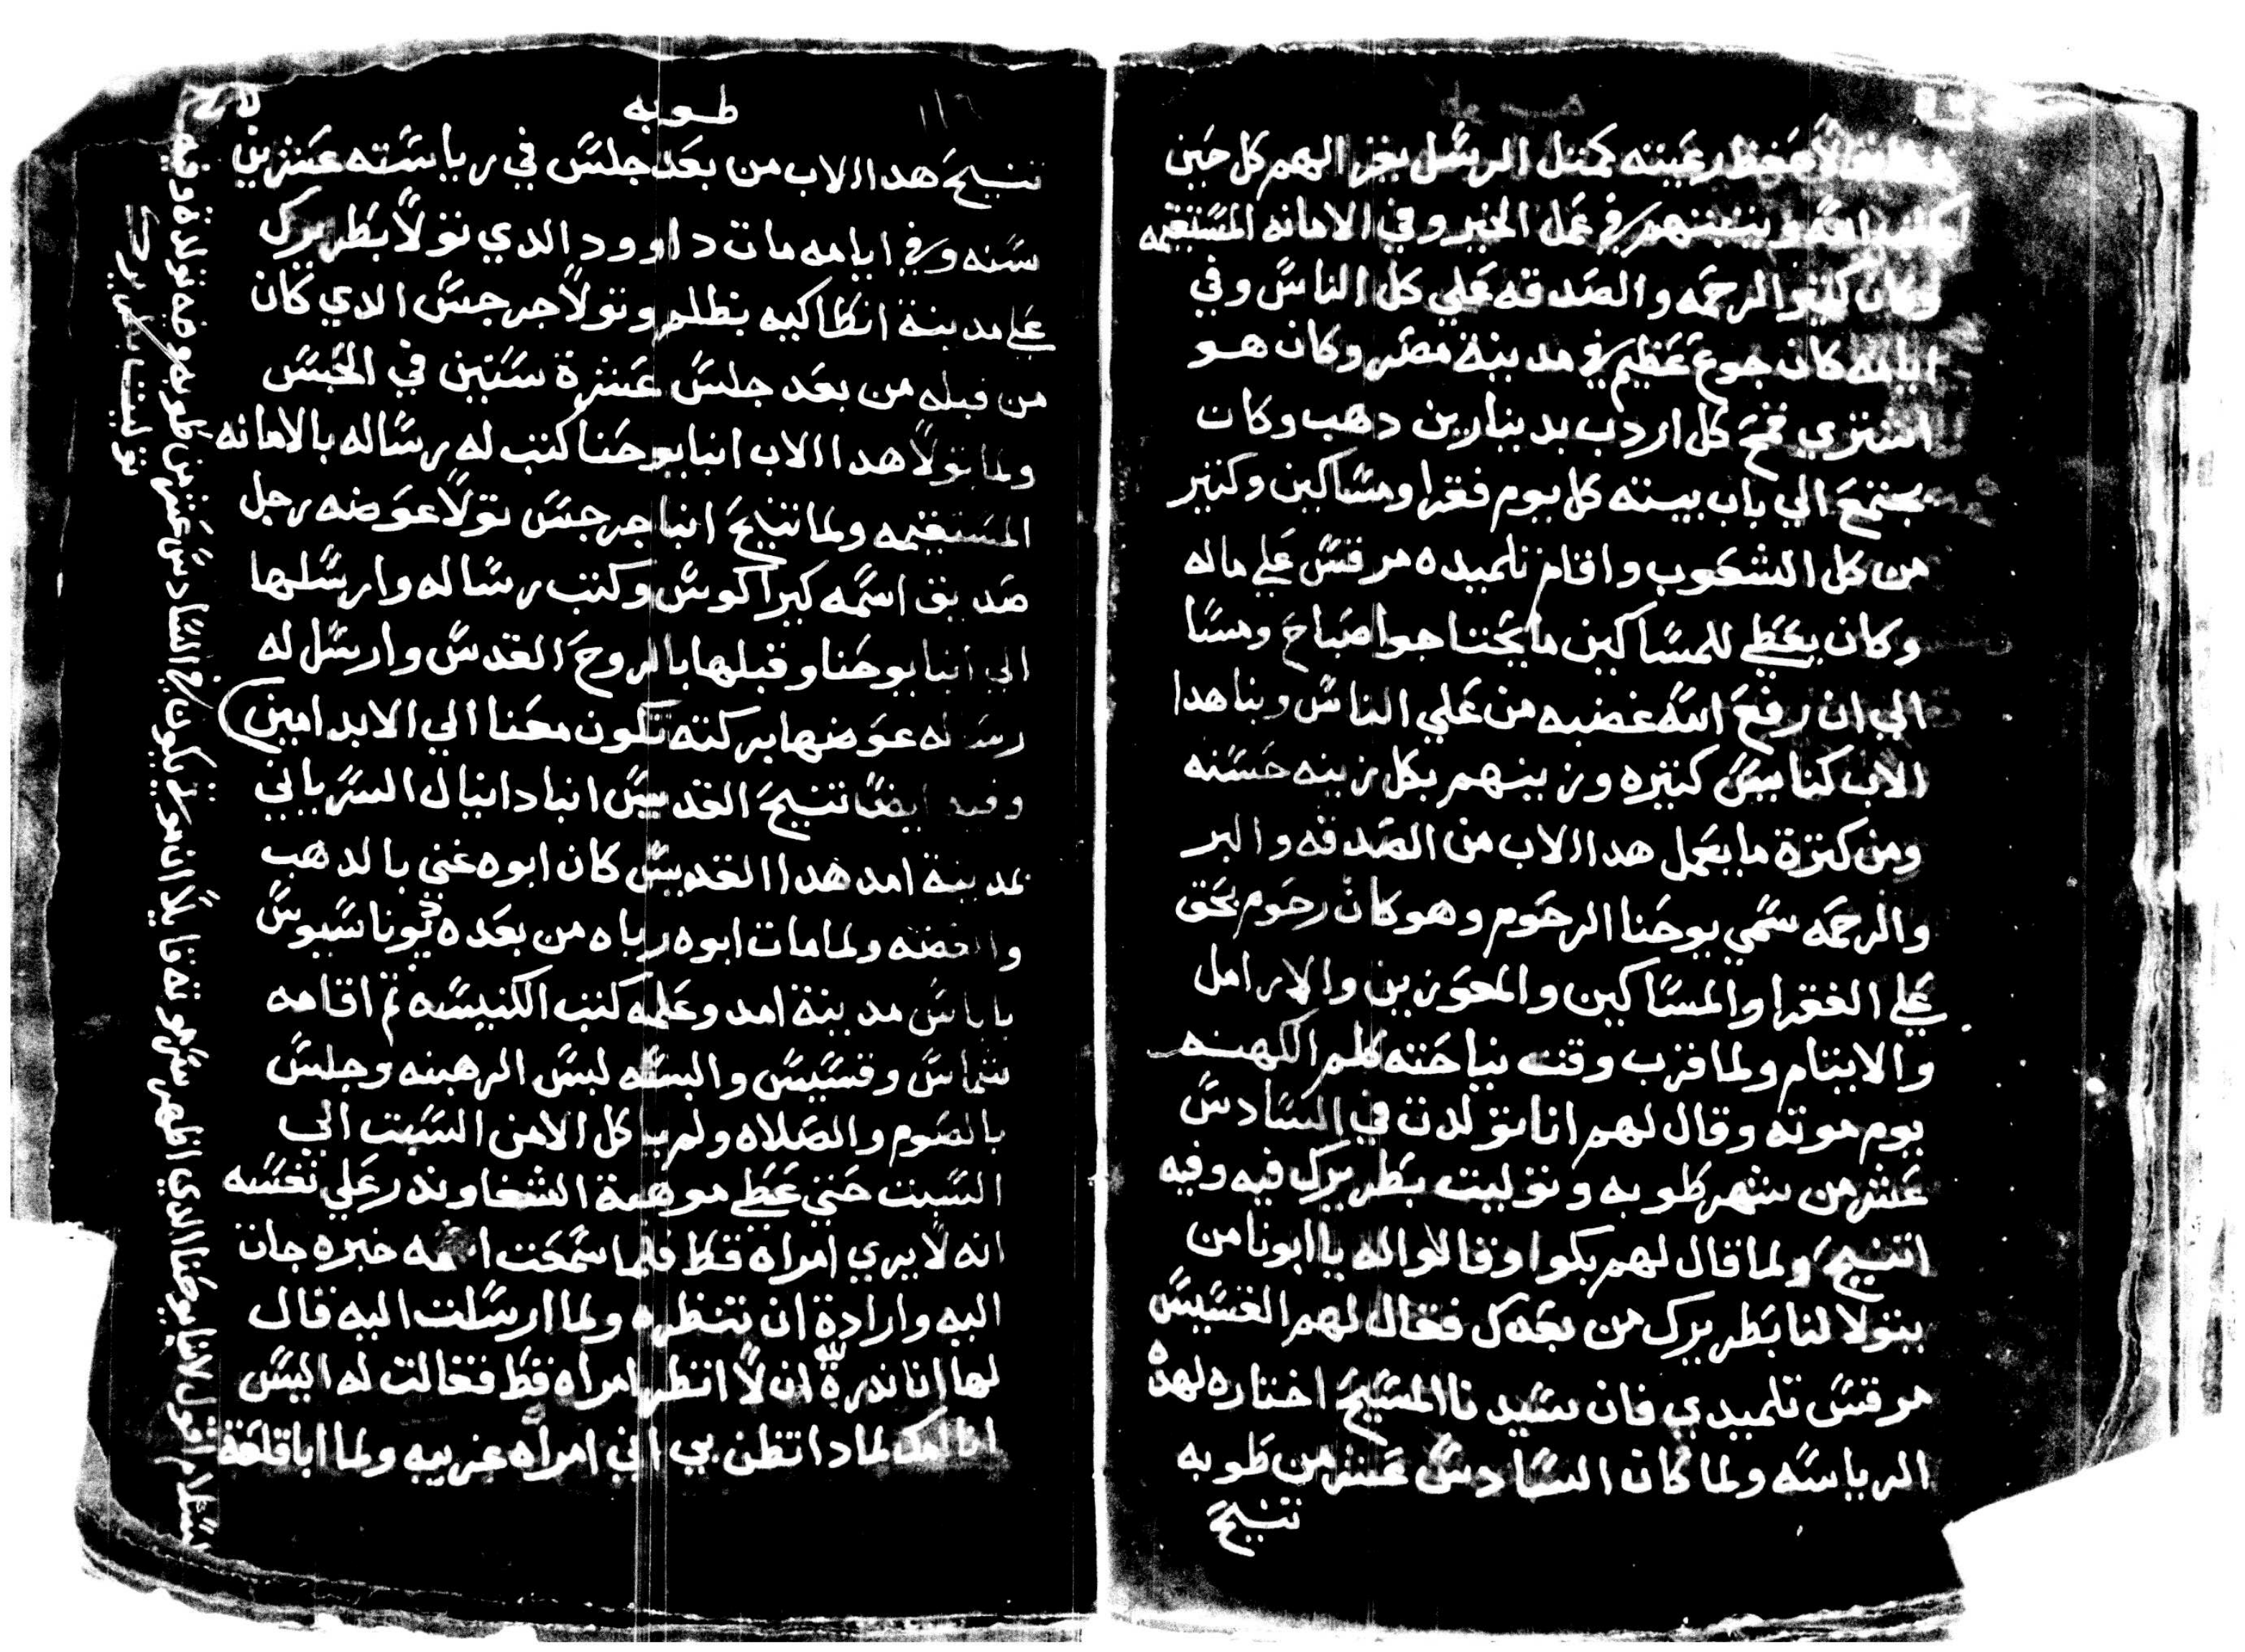 لاحفظ رعيته كمثل الرسل يخز اليهم كل حين
كتب الله ويثبتهم في عمل الخير وفي الامانه المستقيمه
وكان كثير الرحمه والصدقه علي كل الناس وفي
ايامه كان جوع عظيم في مدينة مصر وكان هو
اشتري قمح كل اردب بدينارين دهب وكان
يجتمع الي باب بيته كل يوم فقرا ومساكين وكثير
من كل الشعوب واقام تلميده مرقس علي ماله
وكان يعطي للمساكين ما يحتاجوا صباح ومسا
الي ان رفع الله غضبه من علي الناس وبنا هدا
الاب كنايس كثيره وزينهم بكل زينه حسنه
ومن كترة ما يعمل هدا الاب من الصدقه والبر
والرحمه سمي يوحنا الرحوم وهو كان رحوم بحق
علي الفقرا والمساكين والمعوزين والارامل
والايتام ولما قرب وقت نياحته كلم الكهنه
يوم موته وقال لهم انا تولدت في السادس
عشر من شهر طوبه وتوليت بطريرك فيه وفيه
اتنيح ولما قال لهم بكوا وقالوا له يا ابونا من
يتولا لنا بطريرك من بعدك فقال لهم القسيس
مرقس تلميدي فان سيدنا المسيح اختاره لهده
الرياسه ولما كان السادس عشر من طوبه
تنيح
طوبه
تنيح هدا الاب من بعد جلس في رياسته عشرين
سنه وفي ايامه مات داوود الدي تولا بطريرك
علي مدينة انطاكيه بظلم وتولا جرجس الدي كان
من قبله من بعد جلس عشرة سنين في الحبس
ولما تولا هدا الاب انبا يوحنا كتب له رساله بالامانه
المستقيمه ولما تنيح انبا جرجس تولا عوضه رجل
صديق اسمه كيراكوس وكتب رساله وارسلها
الي انبا يوحنا وقبلها بالروح القدس وارسل له
رساله عوضها بركته تكون معنا الي الابد امين
وفيه ايضا تنيح القديس انبا دانيال السرياني
بمدينة امد هدا القديس كان ابوه غني بالدهب
والفضه ولما مات ابوه رباه من بعده تيوناسيوس
باباس مدينة امد وعلمه كتب الكنيسه تم اقامه
شماس وقسيس والبسه لبس الرهبنه وجلس
بالصوم والصلاه ولم ياكل الا من السبت الي
السبت حتي عطي موهبة الشفا وندر علي نفسه
انه لا يري امراة قط فلما سمعت امه خبره جات
اليه وارادة ان تنظره ولما ارسلت اليه قال
لها انا ندرة لله ان لا انظر امراه قط فقالت له اليس
انا امك لمادا تظن بي اني امراه غريبه ولما ابا قلعة
السلام اقول لانبا يوحنا الدي
توليت بطريرك